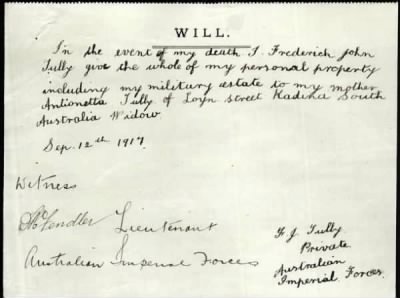 WILL.
In the event of my death I. Frederick John
Tully give the whole of my personal property
including my military estate to my mother
Antionetta Tully of Loyn street Kadina South
Australia Widow
Sep. 12th 1917
Witness
Lieutenant
Australian Imperial Forces
F J Tully
Private
Australian
Imperial Forces.